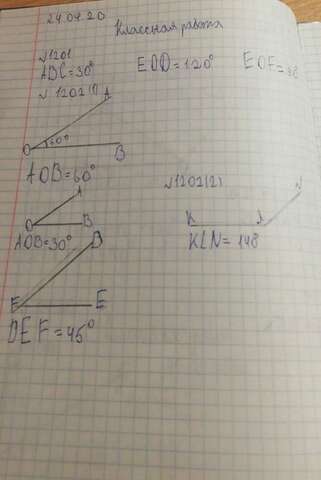 24.04.20
Классная работа
№1201
ABC=30° EOD=120° EOF=38
№1202(1)
A
O 60° B
AOB=60°
№1202(2)
A
O B
K L N
AOB=30°
KLN=148
D
E E
DEF=45°